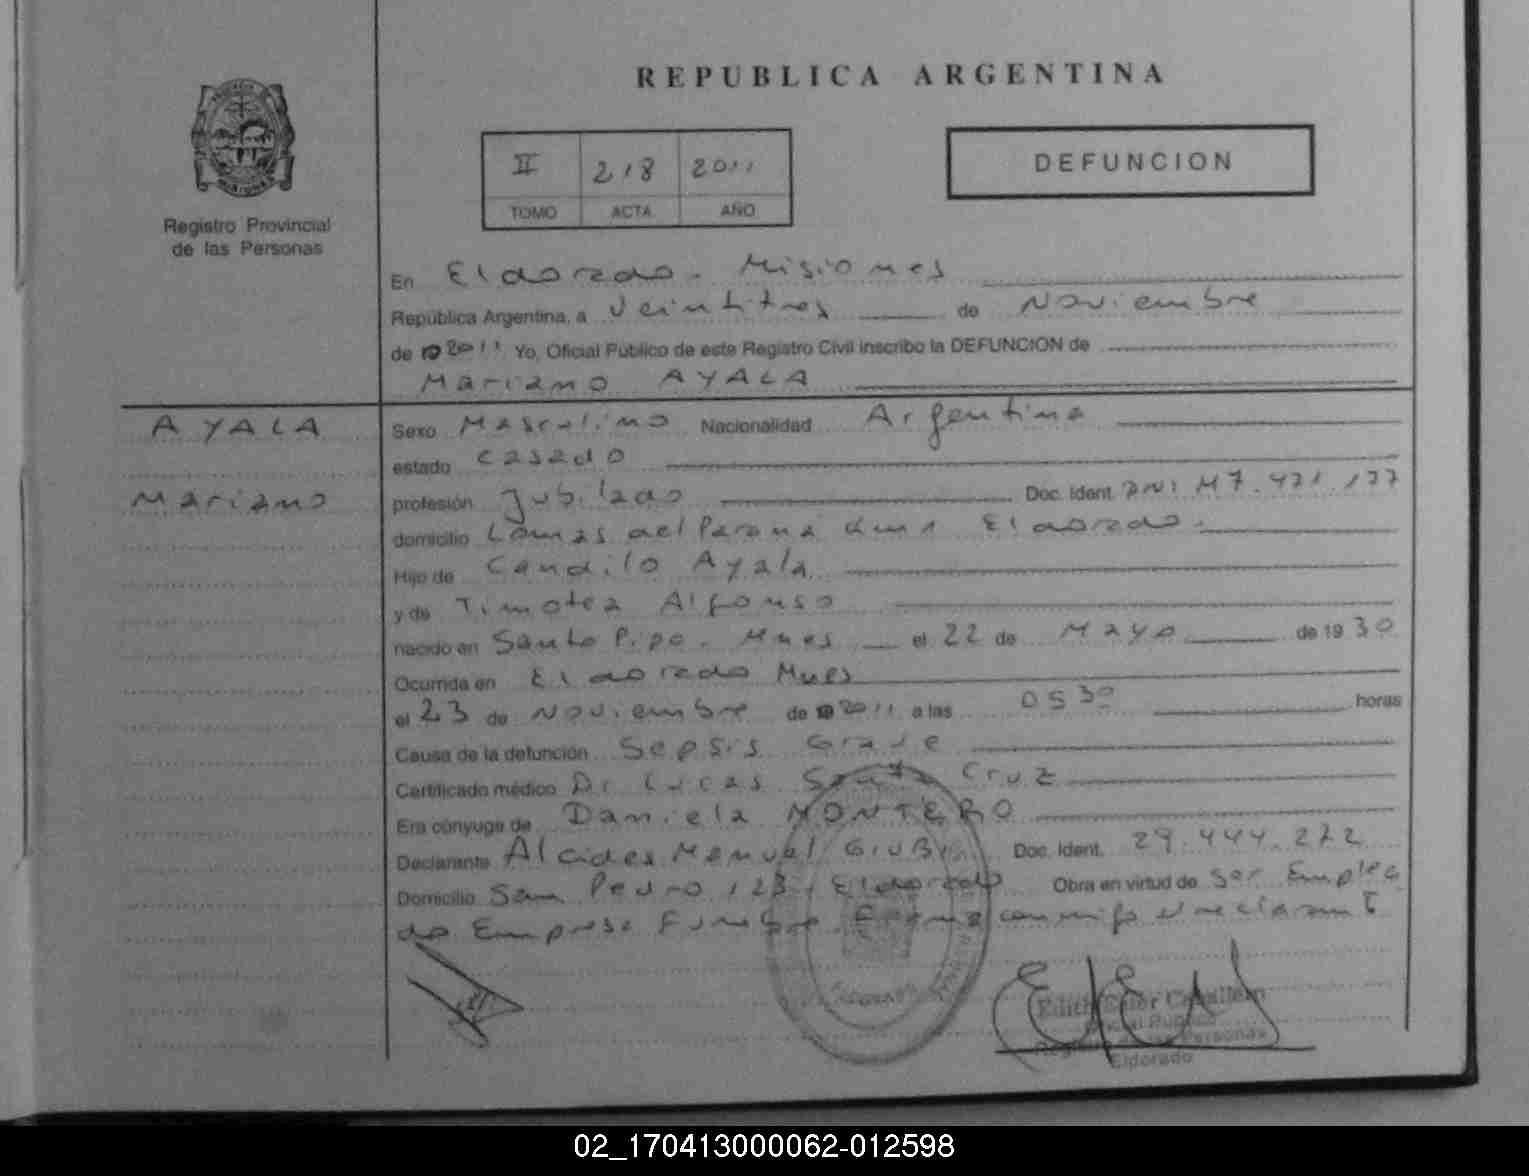 REPUBLICA ARGENTINA
II 218 2011
TOMO ACTA AÑO
DEFUNCION
Registro Provincial
de las Personas
En Eldorado - Misiones
República Argentina, a Veintitres de Noviembre
de 2011 Yo, Oficial Público de este Registro Civil inscribo la DEFUNCION de
Mariano AYALA
AYALA
Mariano
Sexo Masculino Nacionalidad Argentina
estado casado
profesión Jubilado Doc. Ident. DNI M7.471.177
domicilio Lomas del Parana km 1 Eldorado.
Hijo de Candilo Ayala
y de Timotea Alfonso
nacido en Santo Pipo. Mnes el 22 de Mayo de 1930
Ocurrida en Eldorado Mnes
el 23 de Noviembre de 2011 a las 05 30 horas
Causa de la defunción Sepsis Grave
Certificado médico Dr Lucas Santa Cruz
Era cónyuge de Daniela MONTERO
Declarante Alcides Manuel Doc. Ident. 29.444.272
Domicilio San Pedro 123 Eldorado Obra en virtud de ser Emplea
do Empresa Funebre. Firma conmigo el declarante
Edith Ester
Oficial Público
Registro de las Personas
Eldorado
02_170413000062-012598